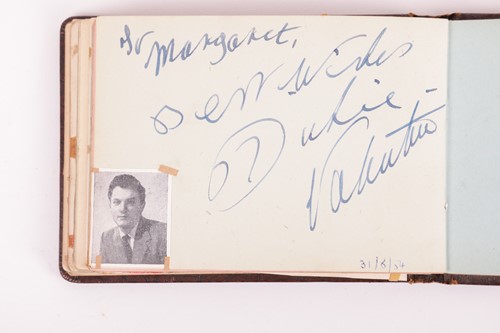 To Margaret,
Best Wishes
Dickie
Valentine
31/8/54